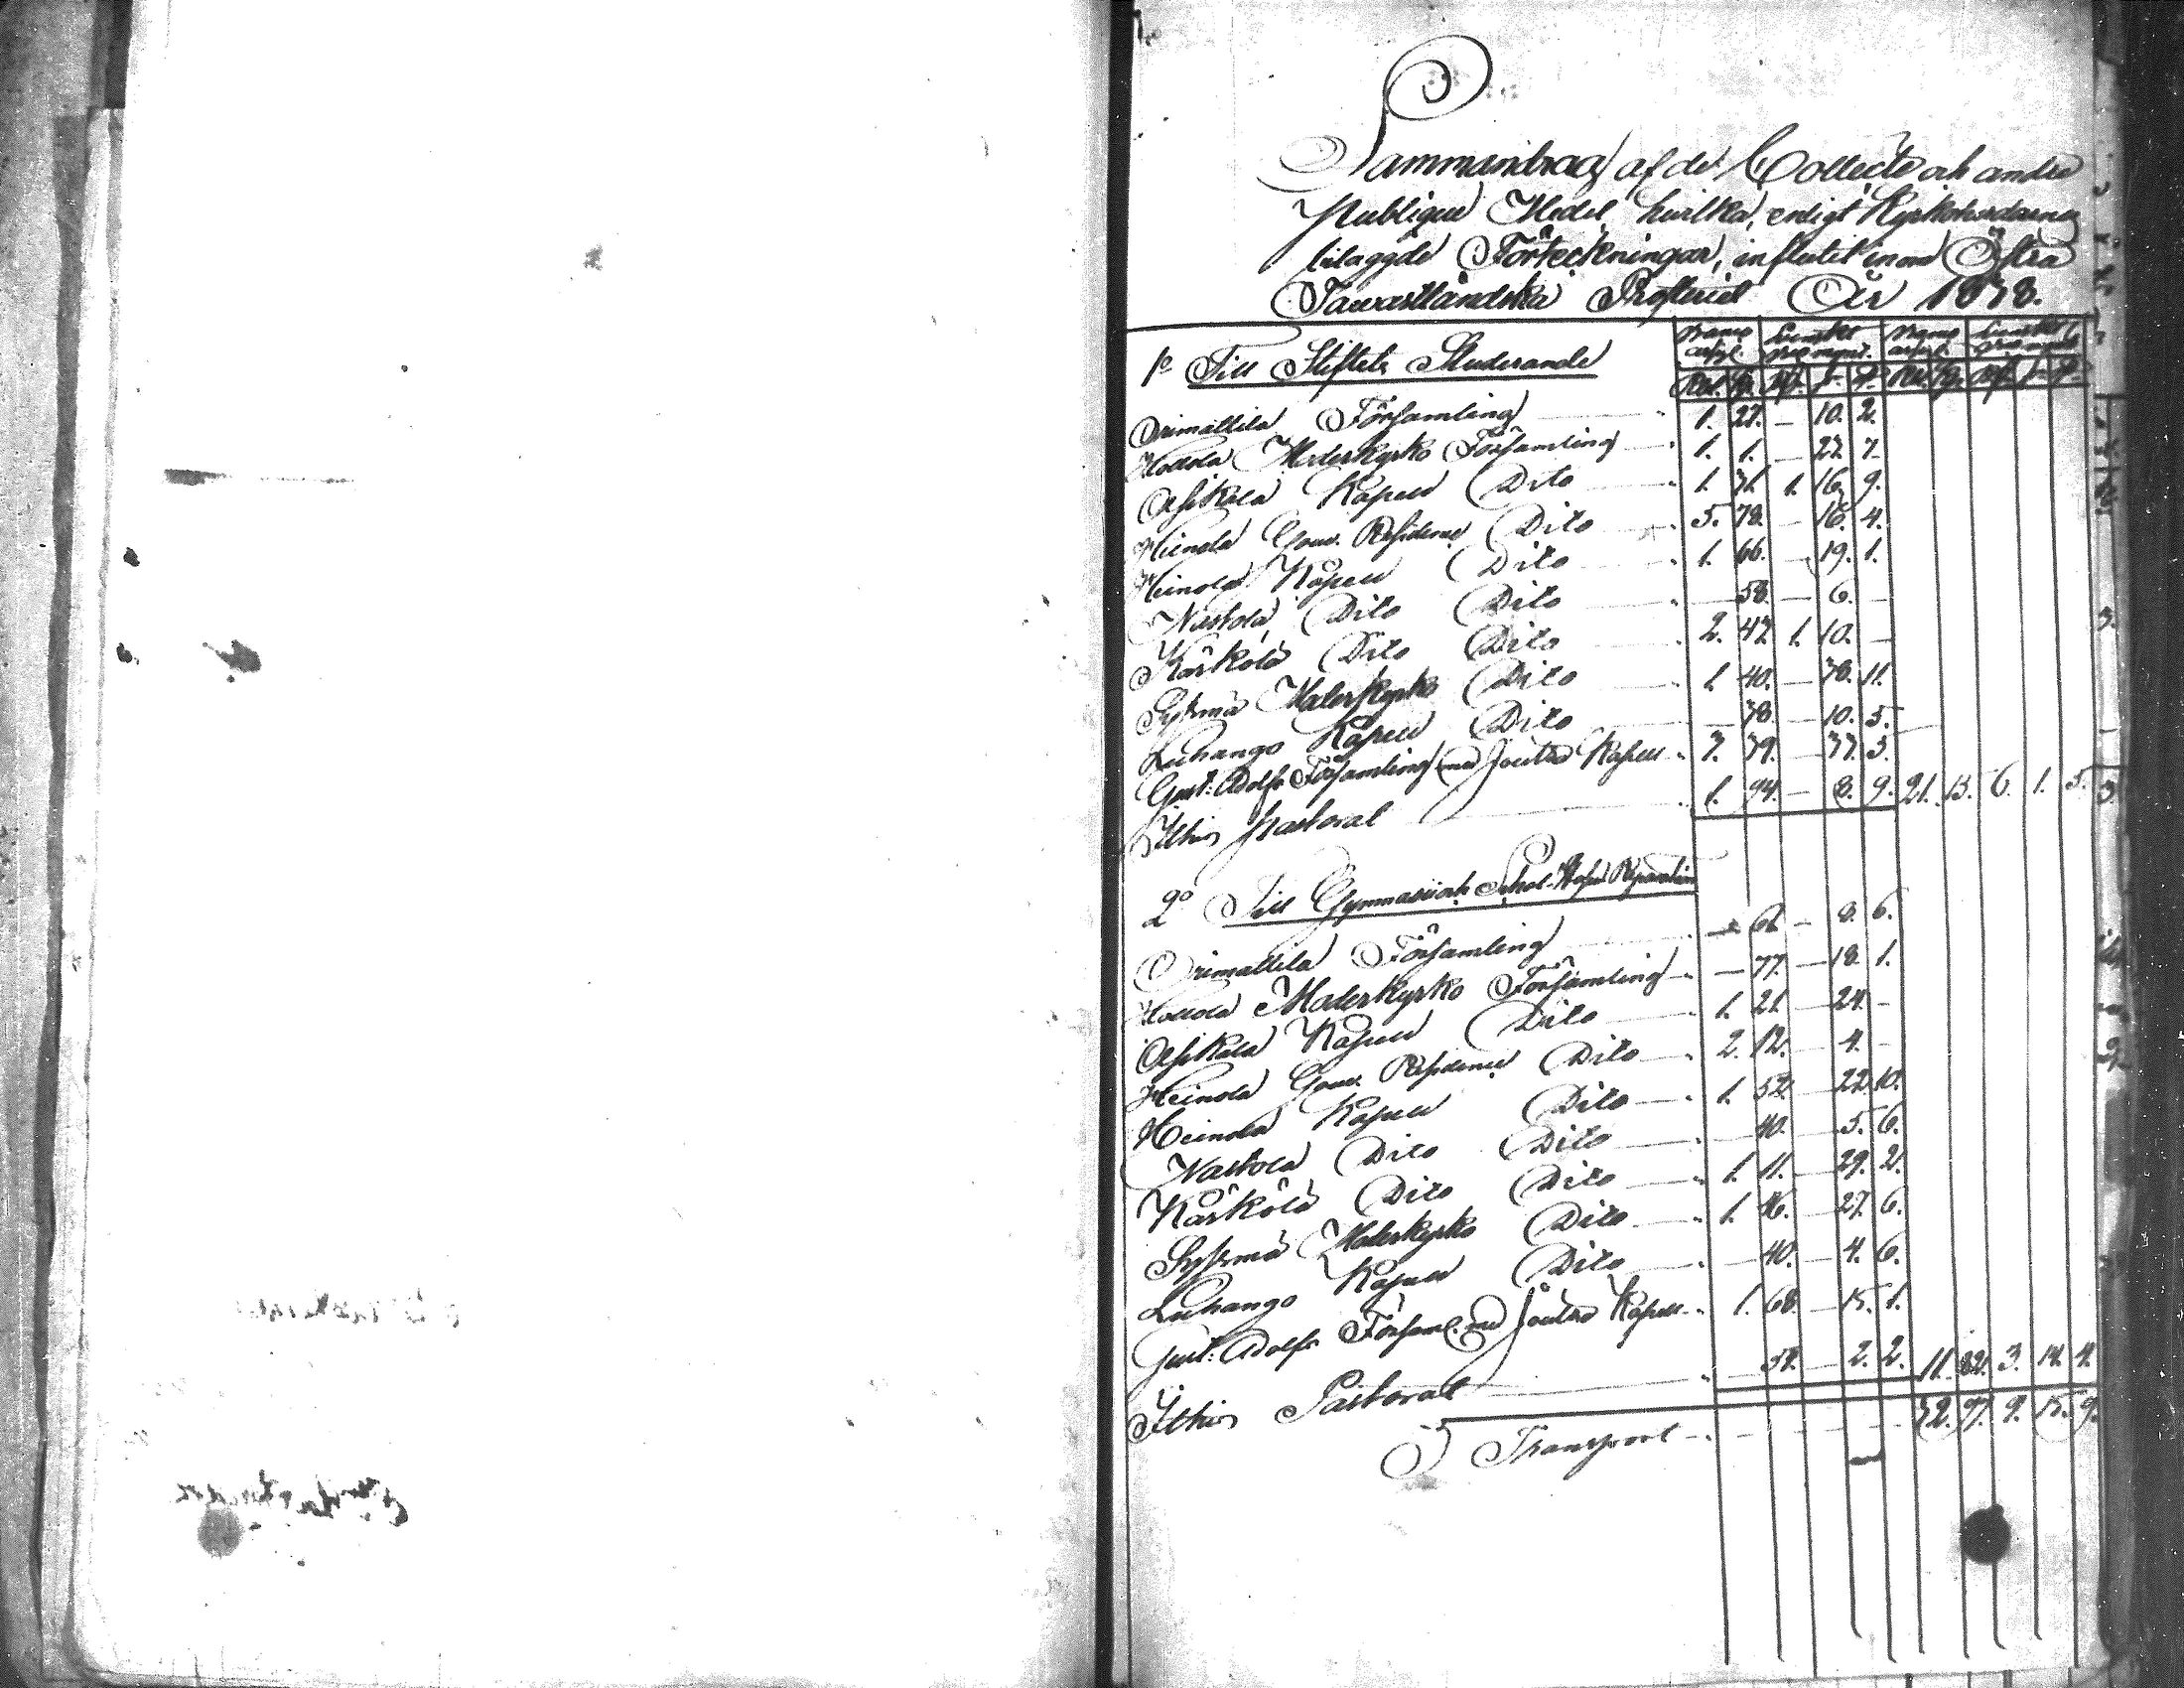 Sammandrag af de Collecte och andre
Publique Medel hvilka, enligt Kyrkoherdarnes
bilaggde Förteckningar, influtit inom Östra
Tawastländska Prosteriet År 1838.
1o Till Stiftets Studerande
Banco assign. Banco assign.
Rbl. K. Rbl. K.
Orimattila Församling 1. 27. – 10. 2.
Hollola Moderkyrko Församling 1. 1. – 22. 7.
Asikkala Kapell Dito 1. 71. 1. 16. 9.
Heinola Gouv. Residence Dito 5. 78. – 16. 4.
Heinola Kapell Dito 1. 66. – 19. 1.
Nastola Dito Dito – 58. – 6. –
Kärkölä Dito Dito 2. 47. 1. 10. –
Sysmä Moderkyrko Dito 1. 40. – 11.
Luhango Kapell Dito – 78. – 10. 5.
Gust: Adolfs Församling med Joutsa Kapell 39. – 3.
Ithis Pastorat 1. 94. – 8. 9. 21. 13. 6. 1. 5.
2o Till Gymnasii och Schol-Husens Reparation
Orimattila Församling – 61. – 8. 6.
Hollola Moderkyrko Församling – 77. – 18. 1.
Asikkala Kapell Dito 1. 21. – 24. –
Heinola Gouv. Residence Dito 2. 12. – 4. –
Heinola Kapell Dito 1. 52. – 22. 10.
Nastola Dito Dito – 40. – 5. 6.
Kärkölä Dito Dito 1. 11. – 29. 2.
Sysmä Moderkyrko Dito 1. 16. – 27. 6.
Luhango Kapell Dito – 40. – 4. 6.
Gust: Adolfs Församl. med Joutsa Kapell 1. 68. – 15. 1.
Ithis Pastorat – – 2. 2. 11. 3. 14. 4.
Transport 32. 97. 9. 15. 9.